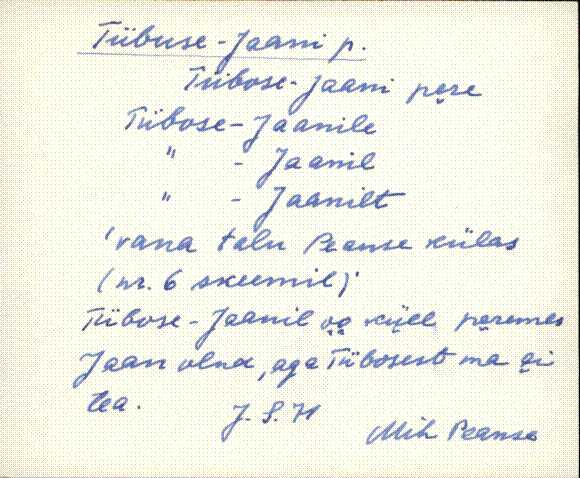 Tiibuse-Jaani p.
Tiibose-Jaani pere
Tiibose-Jaanile
" - Jaanil
" - Jaanilt
'vana talu Peanse külas
(nr. 6 skeemil)'
Tiibose-Jaanil oo küll peremes
Jaan olnd, aga Tiibosest ma ei
tea.
J. S. H
Mih Peanse